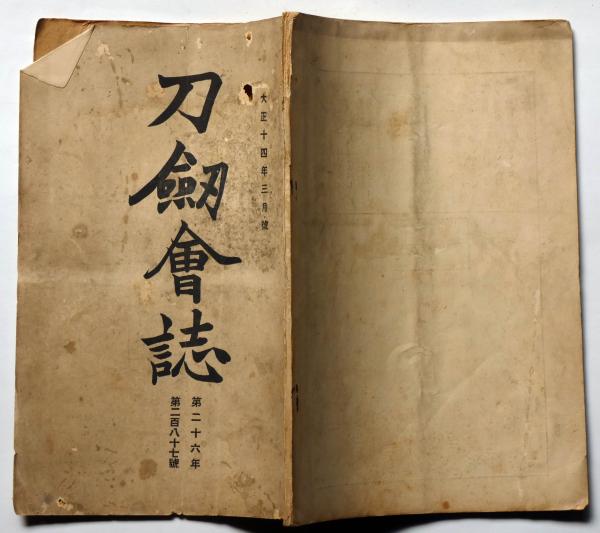 大正十四年三月號
刀劔會誌
第二十六年
第二百八十七號